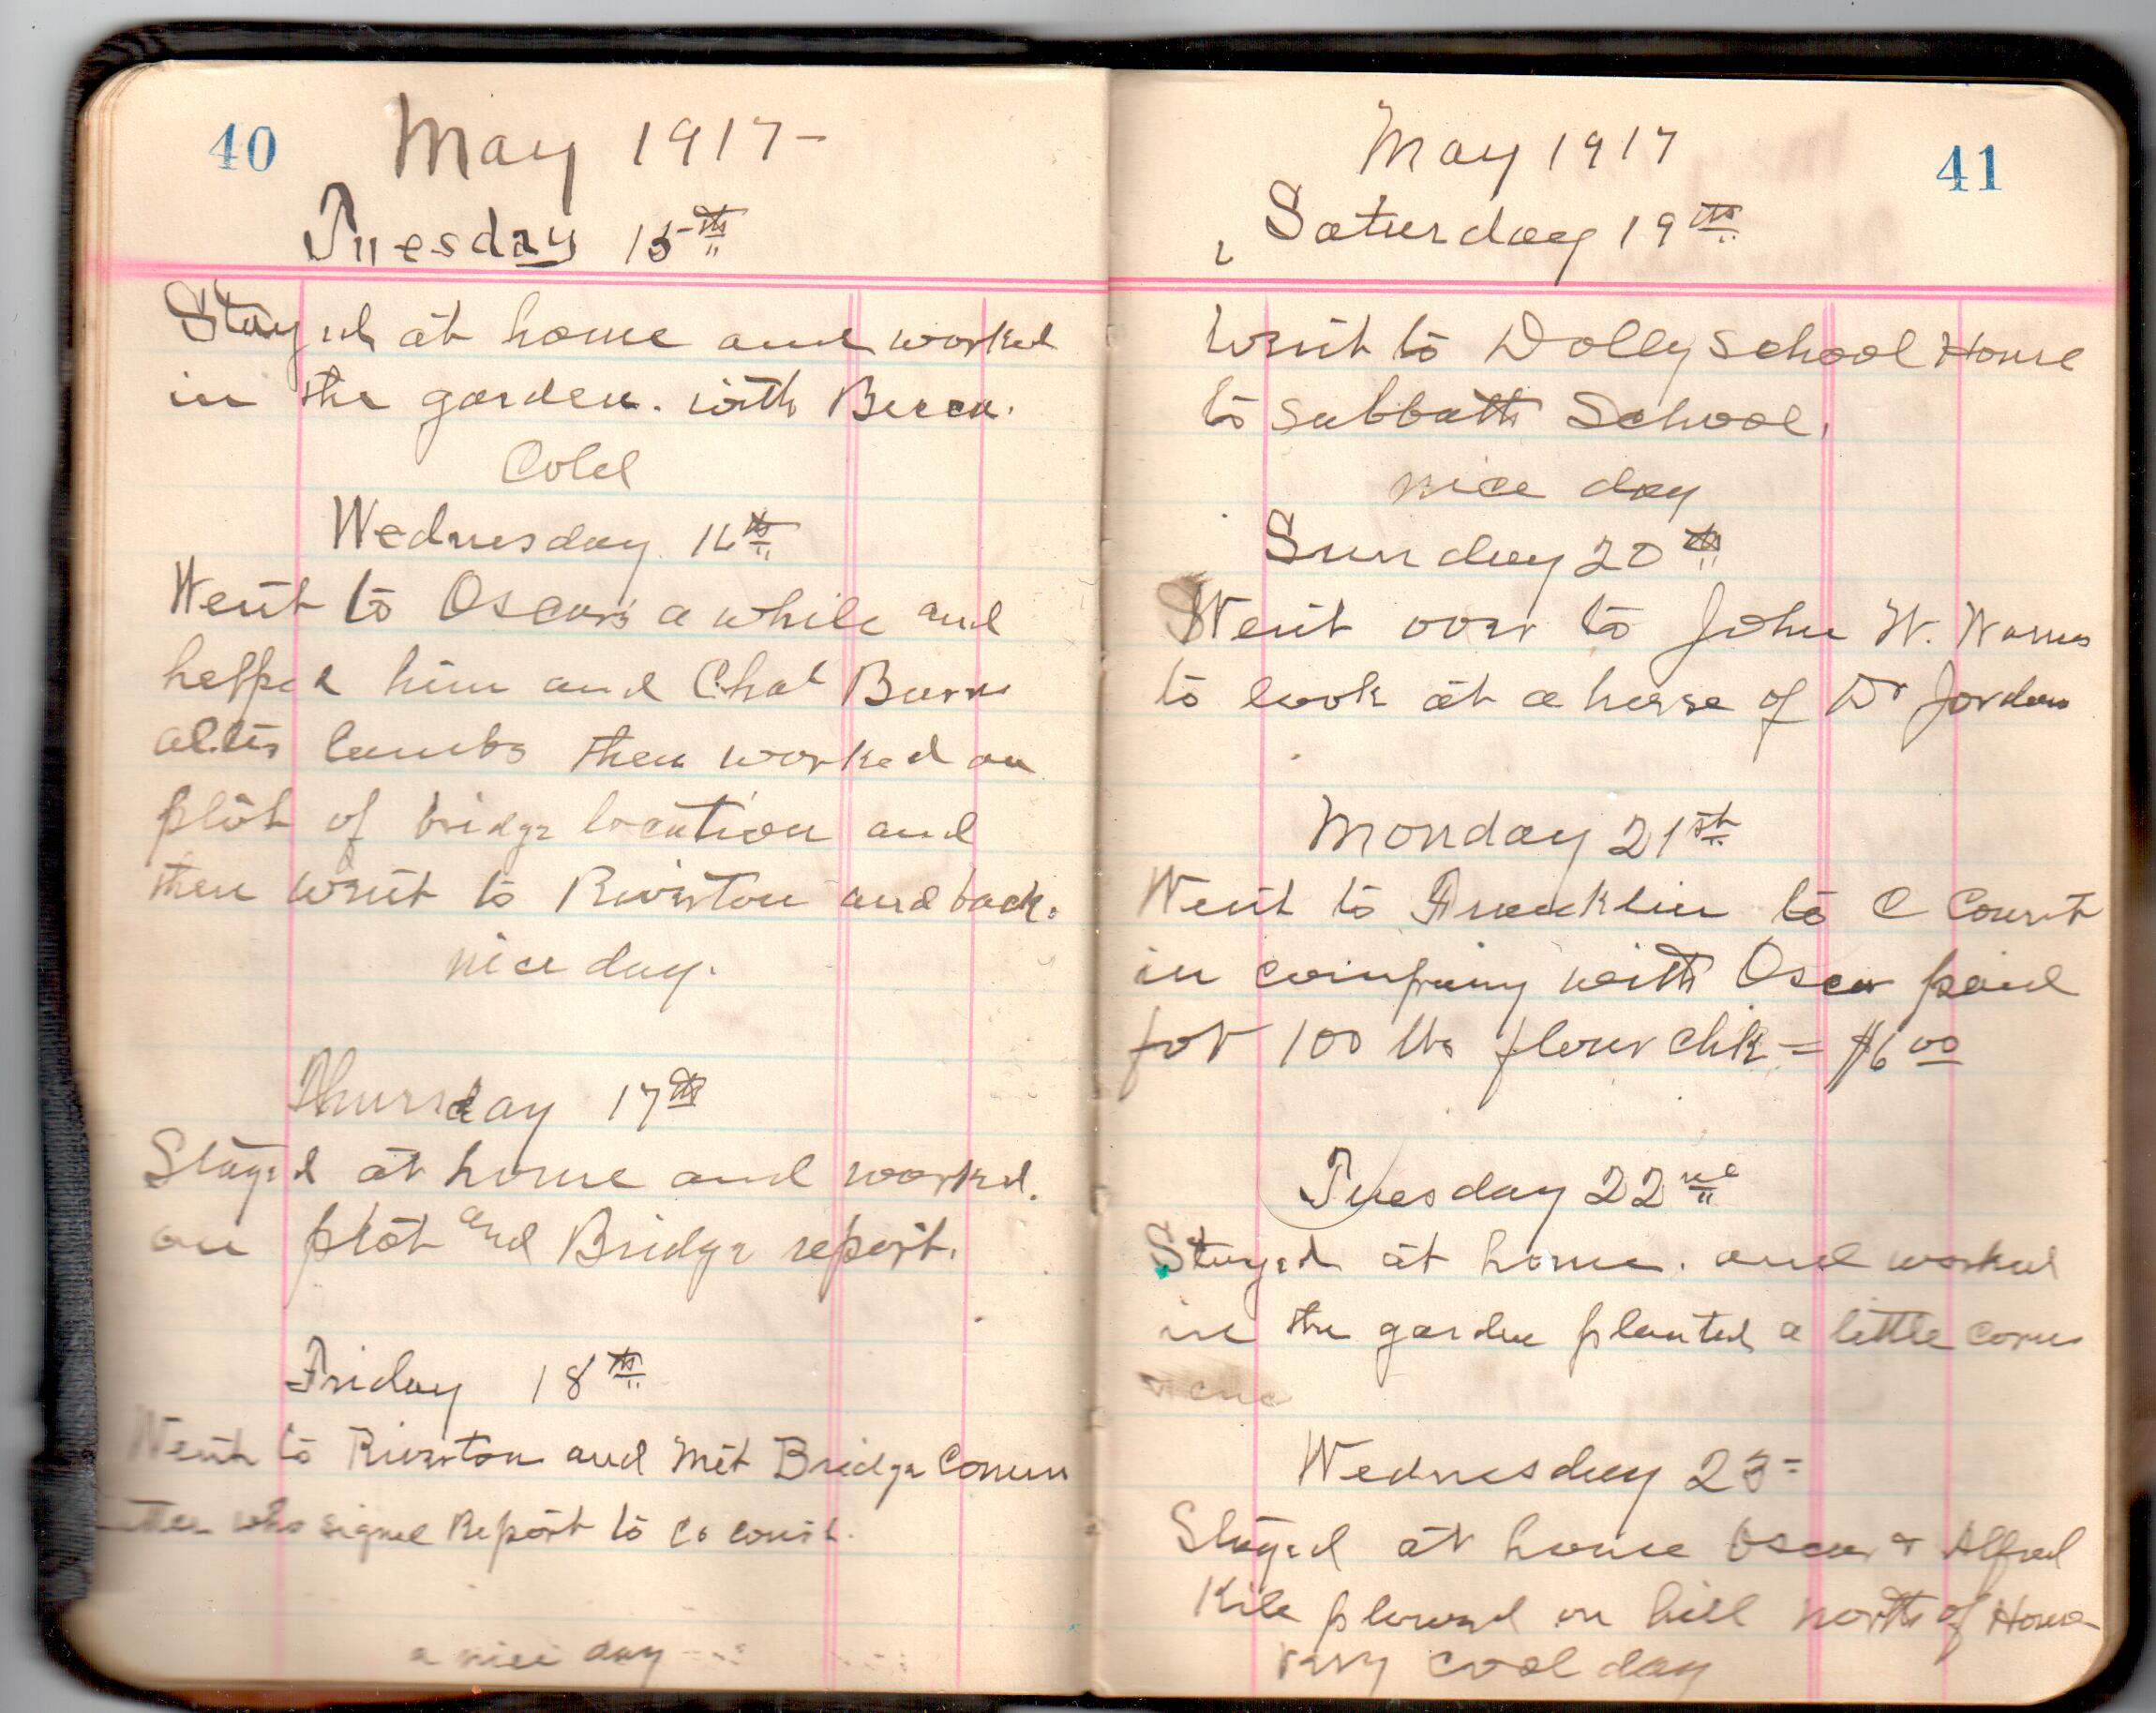 40
May 1917-
Tuesday 15th
Stayed at home and worked
in the garden. with
Cold
Wednesday 16th
Went to Oscars a while and
helped him and
lambs then worked on
plot of bridge location and
then went to Riverton and back.
nice day.
Thursday 17th
Stayed at home and worked.
on plot and Bridge report.
Friday 18th
Went to Riverton and met Bridge Comm
ttee who signed Report to Co court.
a nice day
41
May 1917
Saturday 19th
Went to Dolly School House
to Sabbath School.
nice day
Sunday 20th
Went over to John W.
to look at a horse of Dr Jordan
Monday 21st
Went to Franklin to C Court
in company with Oscar paid
for 100 lbs flour chk = $6.00
Tuesday 22nd
Stayed at home. and worked
in the garden planted a little corn
Wednesday 23=
Stayed at home Oscar & Alfred
Kile plowed on hill north of House
very cool day